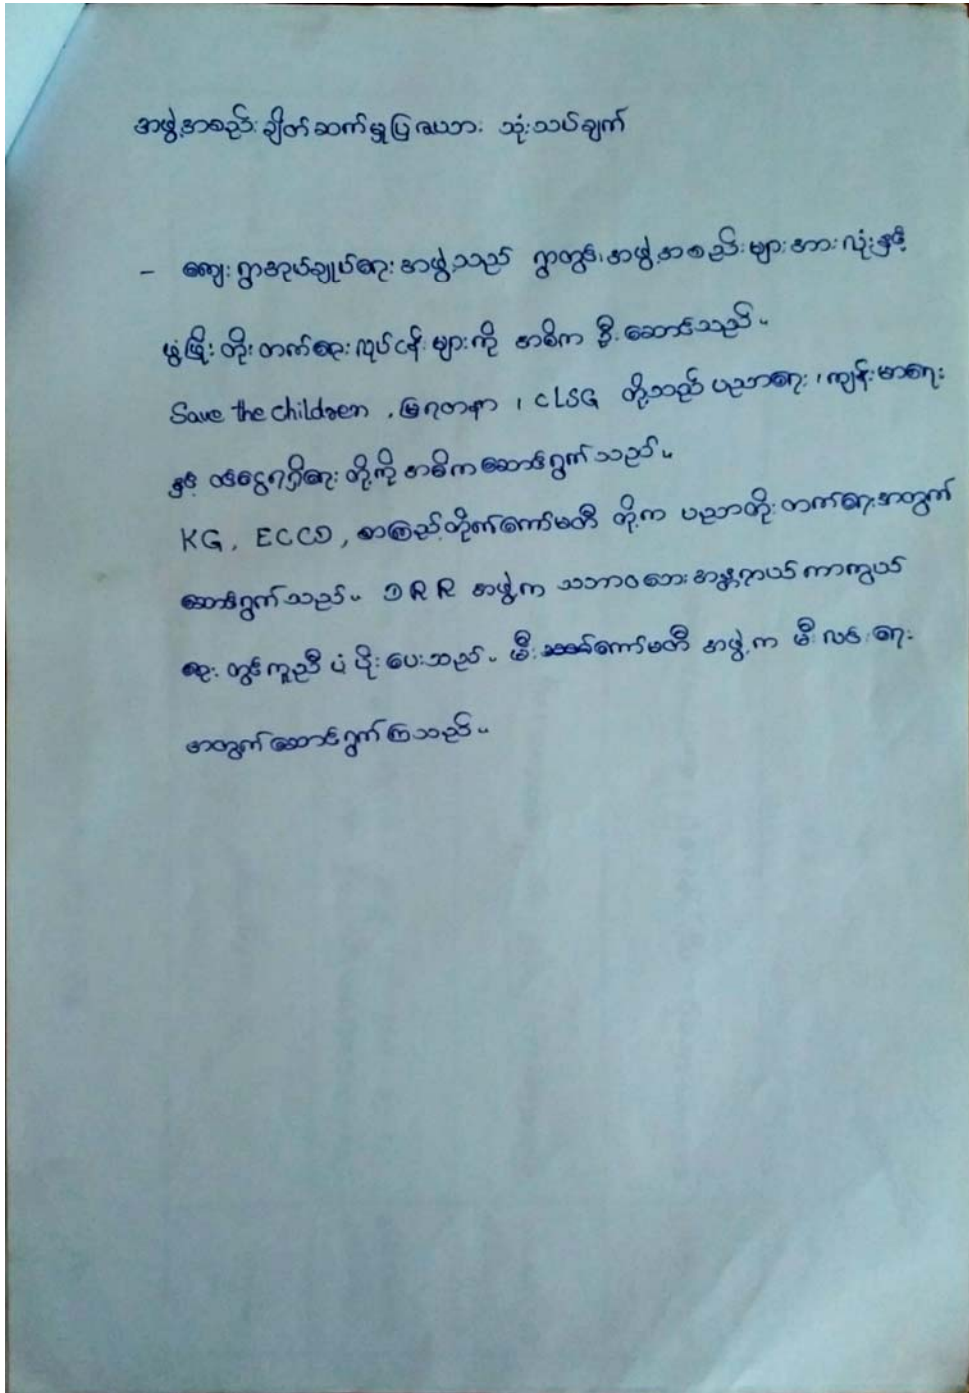 အဖွဲ့အစည်းချိတ်ဆက်မှုပြဇယား သုံးသပ်ချက်
- ကျေးရွာအုပ်ချုပ်ရေးအဖွဲ့သည် ရွာတွင်းအဖွဲ့အစည်းများအားလုံးနှင့်
ဖွံ့ဖြိုးတိုးတက်ရေးလုပ်ငန်းများကို အဓိကဦးဆောင်သည်။
Save the children , မြရတနာ ၊ CLSG တို့သည် ပညာရေး ၊ ကျန်းမာရေး
နှင့် ဝင်ငွေရရှိရေးတို့ကို အဓိကဆောင်ရွက်သည်။
KG , ECCD , စာကြည့်တိုက်ကော်မတီ တို့က ပညာတိုးတက်ရေးအတွက်
ဆောင်ရွက်သည်။ DRR အဖွဲ့က သဘာဝဘေးအန္တရာယ်ကာကွယ်
ရေးတွင်ကူညီပံ့ပိုးပေးသည်။ မီးကော်မတီအဖွဲ့က မီးလင်းရေး
အတွက်ဆောင်ရွက်ကြသည်။